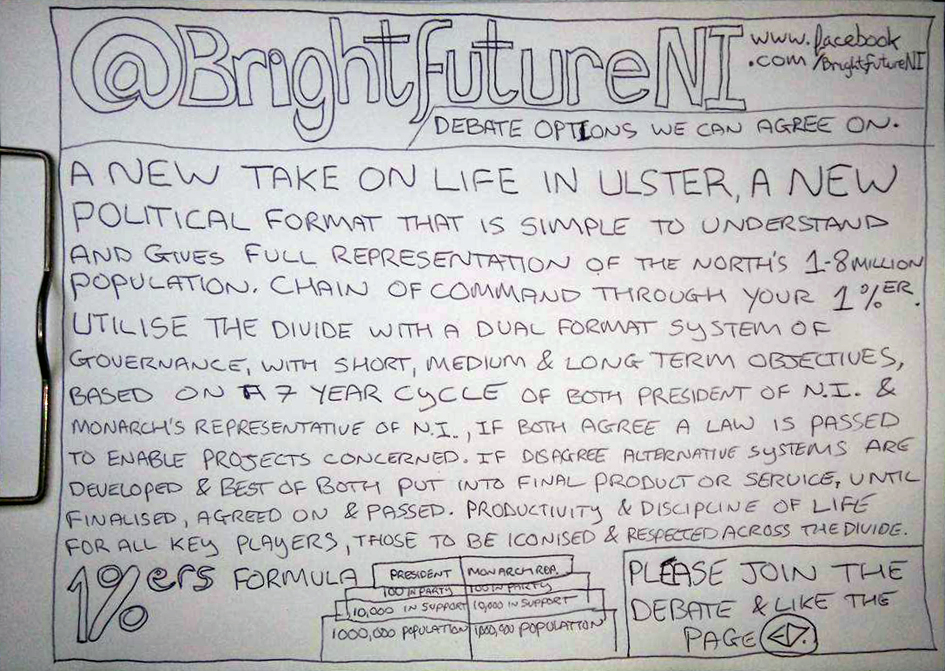 @BrightfutureNI
www.facebook
.com/BrightfutureNI
DEBATE OPTIONS WE CAN AGREE ON.
A NEW TAKE ON LIFE IN ULSTER, A NEW
POLITICAL FORMAT THAT IS SIMPLE TO UNDERSTAND
AND GIVES FULL REPRESENTATION OF THE NORTH'S 1-8 MILLION
POPULATION. CHAIN OF COMMAND THROUGH YOUR 1%ER.
UTILISE THE DIVIDE WITH A DUAL FORMAT SYSTEM OF
GOVERNANCE, WITH SHORT, MEDIUM & LONG TERM OBJECTIVES,
BASED ON A 7 YEAR CYCLE OF BOTH PRESIDENT OF N.I. &
MONARCH'S REPRESENTATIVE OF N.I., IF BOTH AGREE A LAW IS PASSED
TO ENABLE PROJECTS CONCERNED. IF DISAGREE ALTERNATIVE SYSTEMS ARE
DEVELOPED & BEST OF BOTH PUT INTO FINAL PRODUCT OR SERVICE, UNTIL
FINALISED, AGREED ON & PASSED. PRODUCTIVITY & DISCIPLINE OF LIFE
FOR ALL KEY PLAYERS, THOSE TO BE ICONISED & RESPECTED ACROSS THE DIVIDE.
1%ers FORMULA
PRESIDENT MONARCH REP.
100 IN PARTY 100 IN PARTY
10,000 IN SUPPORT 10,000 IN SUPPORT
1000,000 POPULATION 1,000,000 POPULATION
PLEASE JOIN THE
DEBATE & LIKE THE
PAGE